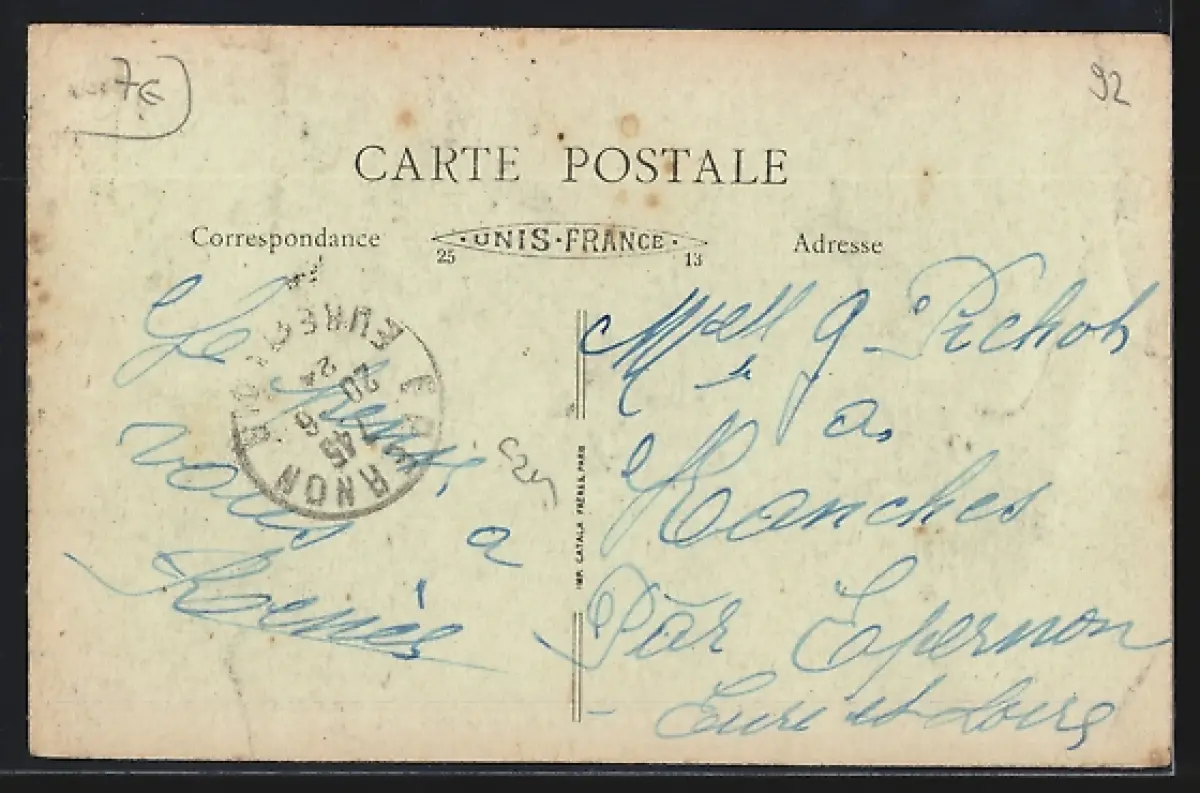 7€
92
CARTE POSTALE
Correspondance
·UNIS·FRANCE·
25 13
Adresse
Je pense
vous a
EURE
20
24
6
45
ANON
IMP. CATALA FRERES, PARIS
Melle G Pichot
a
Hanches
Par Epernon
Eure et Loire